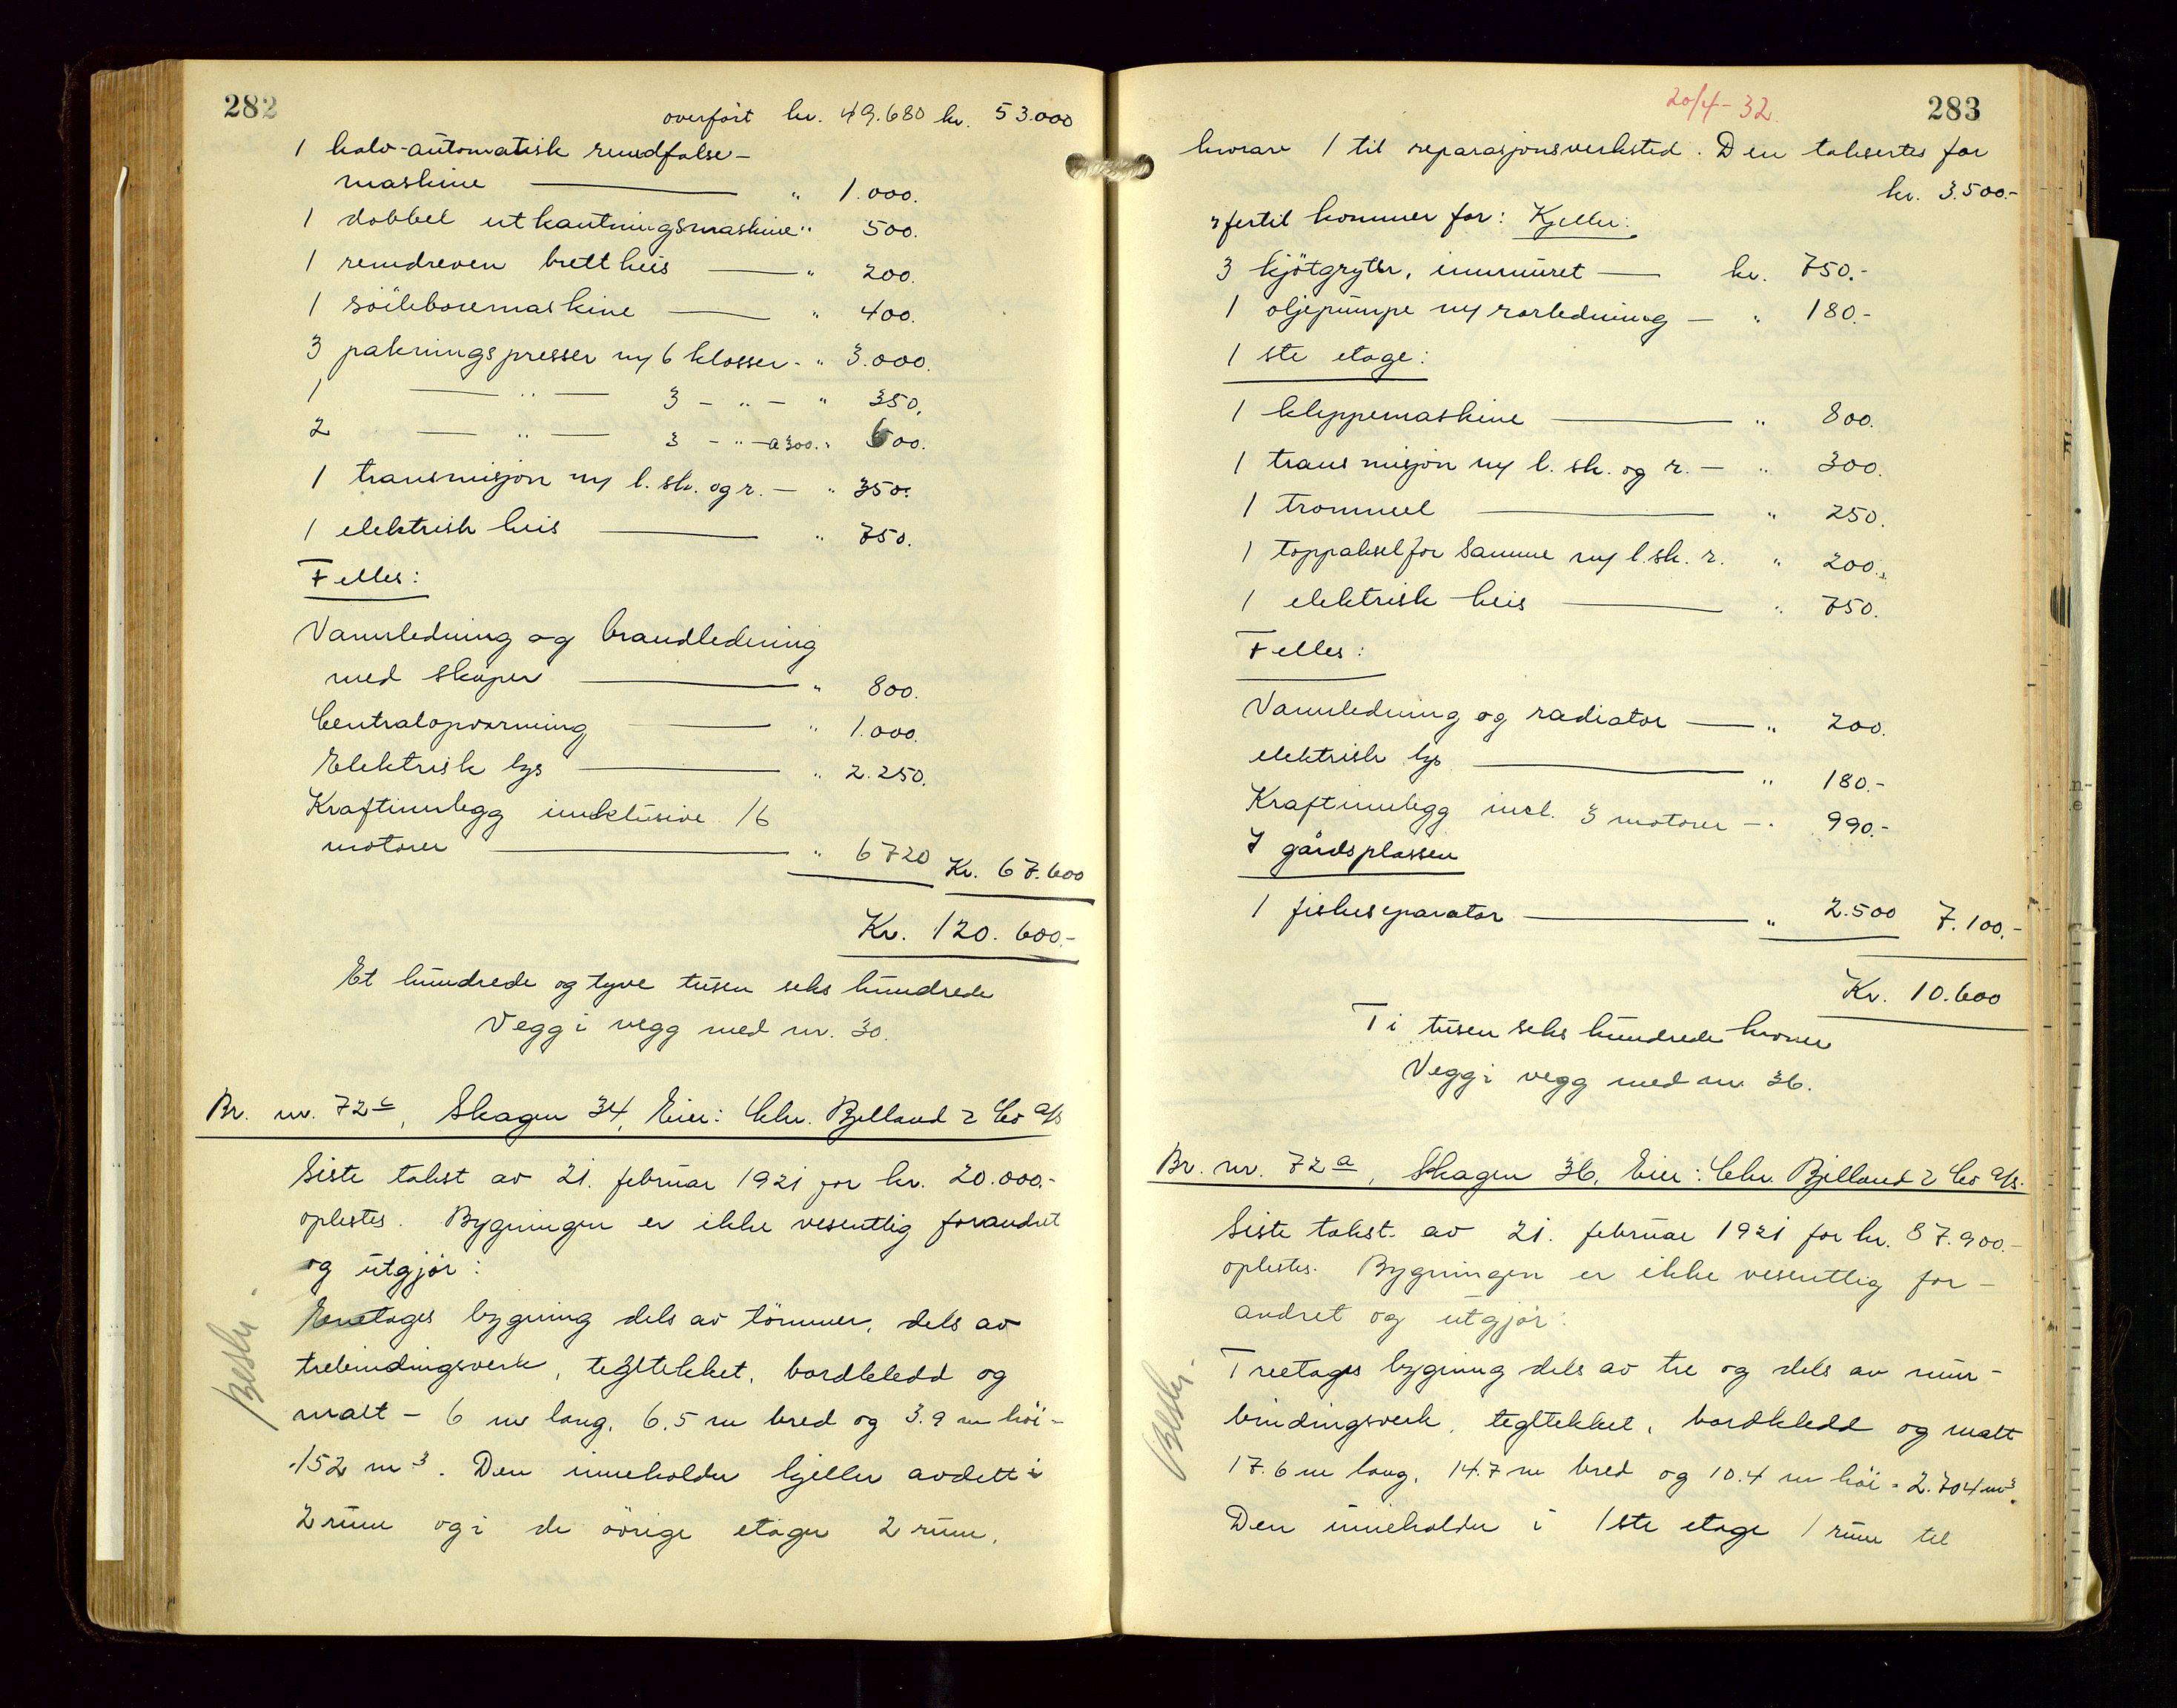 282
overført kr. 49.680 kr. 53.000
1 halv-automatisk rundfalse-
maskine — " 1.000.
1 dobbel utkantningsmaskine " 500.
1 remdreven brettheis — " 200.
1 söileboremaskine — " 400.
3 pakningspresser m/ 6 klosser - " 3.000.
1 — " — 3 - " - " 350.
2 — " — 3 - " - a 300. " 600.
1 transmisjon m/ l. sk. og r. — " 350.
1 elektrisk heis — " 750.
Felles:
Vannledning og brandledning
med skaper — " 800.
Centralopvarming — " 1.000.
Elektrisk lys — " 2.250.
Kraftinnlegg inklusive 16
motorer — " 6720 Kr. 67.600
Kr. 120.600.-
Et hundrede og tyve tusen seks hundrede
Vegg i vegg med nr. 30.
Br. nr. 72c, Skagen 34, Eier: Chr. Bjelland & Co a/s
Siste takst av 21. februar 1921 for kr. 20.000.-
oplestes. Bygningen er ikke vesentlig forandret
og utgjör:
Enetages bygning dels av tömmer, dels av
trebindingsverk, tegltekket, bordkledd og
malt - 6 m lang, 6.5 m bred og 3.9 m höi -
152 m3. Den inneholder kjeller avdelt i
2 rum og i de övrige etager 2 rum,
Beskr.
20/4-32.
283
hvorav 1 til reparasjonsverksted. Den takseres for
kr. 3.500.-
Hertil kommer for: Kjeller:
3 kjötgryter, innmuret — kr. 750.-
1 oljepumpe m/ rørledning — " 180.-
1ste etage:
1 klippemaskine — " 800.
1 transmisjon m/ l. sk. og r. — " 300.
1 trommel — " 250.
1 toppaksel for samme m/ l. sk. r. " 200.
1 elektrisk heis — " 750.
Felles:
Vannledning og radiator — " 200.
elektrisk lys — " 180.-
Kraftinnlegg incl. 3 motorer — " 990.-
I gårdsplassen
1 fiskeseparator — " 2.500 7.100.-
Kr. 10.600
Ti tusen seks hundrede kroner
Vegg i vegg med nr. 36.
Br. nr. 72a, Skagen 36, Eier: Chr. Bjelland & Co a/s.
Siste takst av 21. februar 1921 for kr. 87.900.-
oplestes. Bygningen er ikke vesentlig for-
andret og utgjör:
Treetages bygning dels av tre og dels av mur-
bindingsverk, tegltekket, bordkledd og malt
17.6 m lang, 14.7 m bred og 10.4 m höi - 2.704 m3.
Den inneholder i 1ste etage 1 rum til
Beskr.